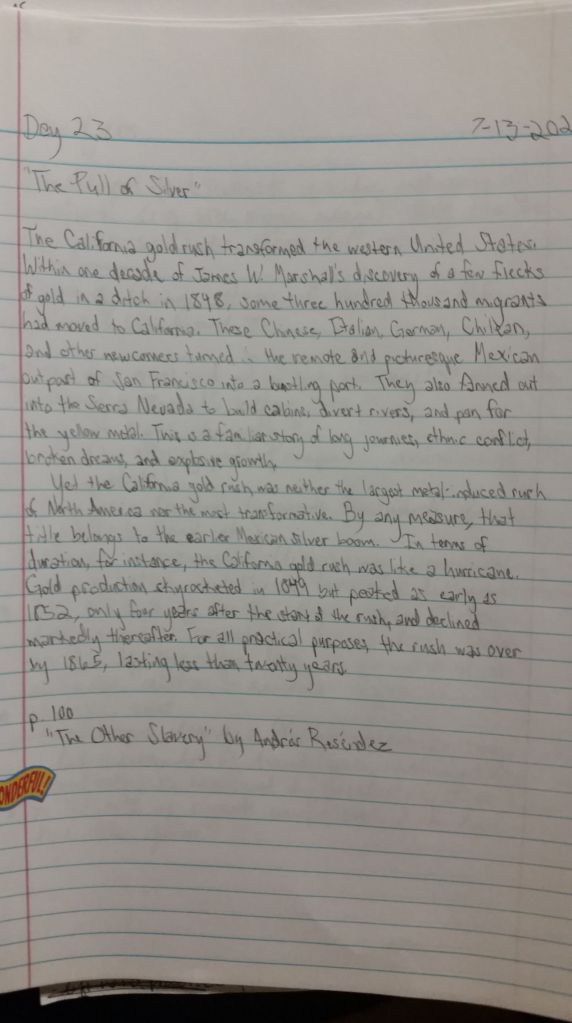 Day 23 7-13-202
"The Pull of Silver"
The California goldrush transformed the western United States.
Within one decade of James W. Marshall's discovery of a few flecks
of gold in a ditch in 1848, some three hundred thousand migrants
had moved to California. These Chinese, Italian, German, Chilean,
and other newcomers turned the remote and picturesque Mexican
outpost of San Francisco into a bustling port. They also fanned out
into the Serra Nevada to build cabins, divert rivers, and pan for
the yellow metal. This is a familiar story of long journeys, ethnic conflict,
broken dreams, and explosive growth.
Yet the California gold rush was neither the largest metal-induced rush
of North America nor the most transformative. By any measure, that
title belongs to the earlier Mexican silver boom. In terms of
duration, for instance, the California gold rush was like a hurricane.
Gold production skyrocketed in 1849 but peaked as early as
1852, only four years after the start of the rush, and declined
markedly thereafter. For all practical purposes, the rush was over
by 1865, lasting less than twenty years.
p. 100
"The Other Slavery" by Andrés Reséndez
ONDERFUL!